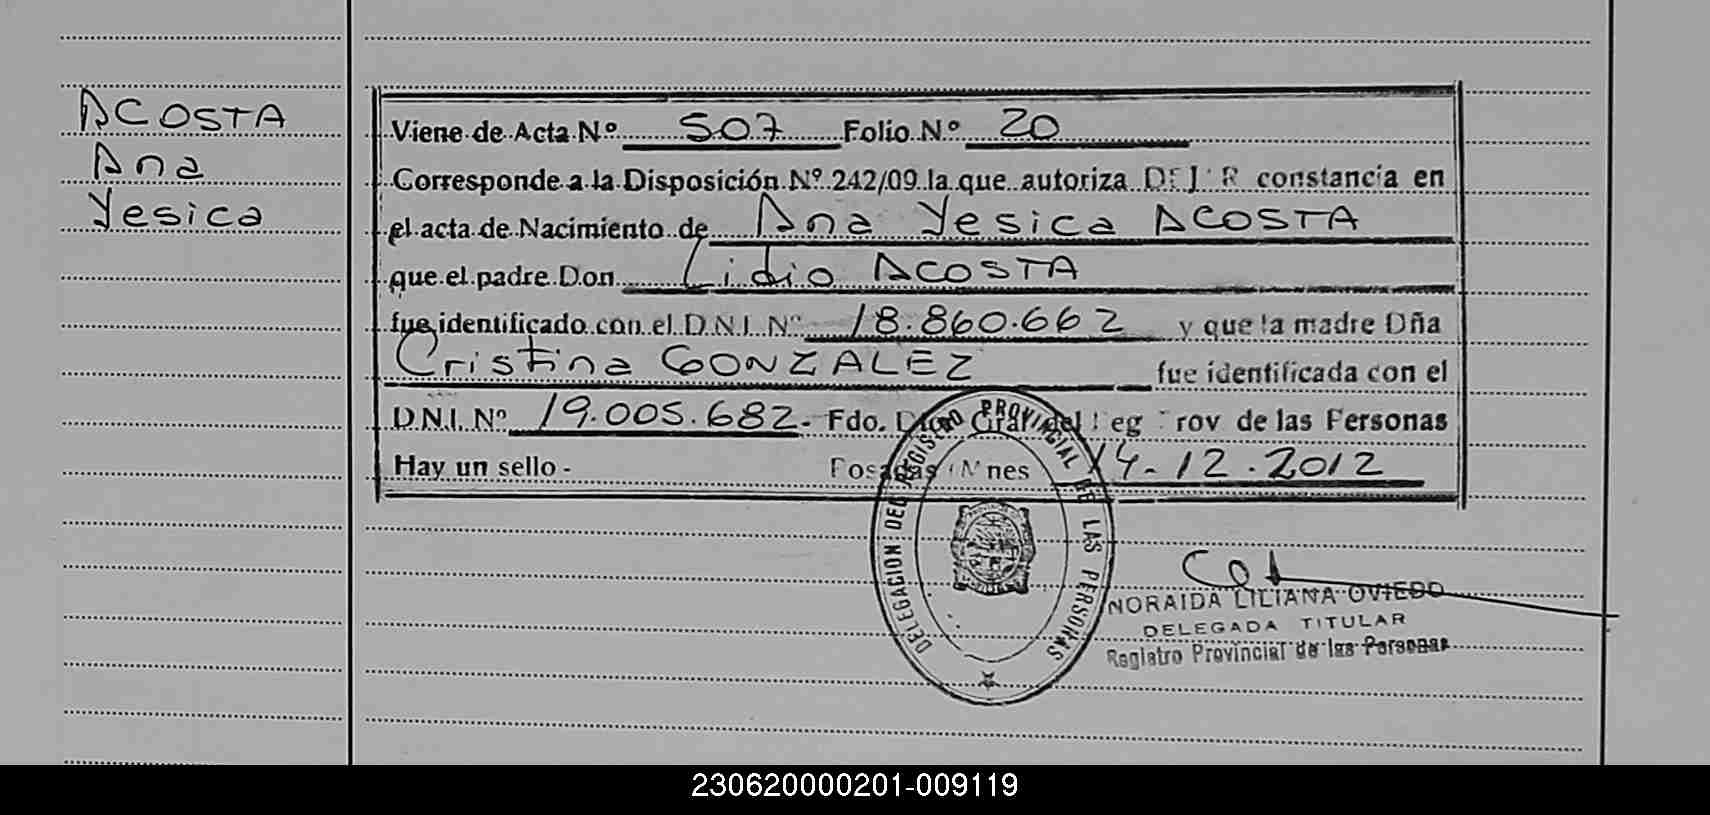 ACOSTA
Ana
Yesica
Viene de Acta Nº 507 Folio Nº 20
Corresponde a la Disposición Nº 242/09 la que autoriza DEJ R constancia en
el acta de Nacimiento de Ana Yesica ACOSTA
que el padre Don Lidio ACOSTA
fue identificado con el D.N.I. Nº 18.860.662 y que la madre Dña
Cristina GONZALEZ fue identificada con el
D.N.I. Nº 19.005.682- Fdo. Gral del Reg Prov de las Personas
Hay un sello - Posadas Mnes 14-12-2012
DELEGACION DEL REGISTRO PROVINCIAL DE LAS PERSONAS
NORAIDA LILIANA OVIEDO
DELEGADA TITULAR
Registro Provincial de las Personas
230620000201-009119